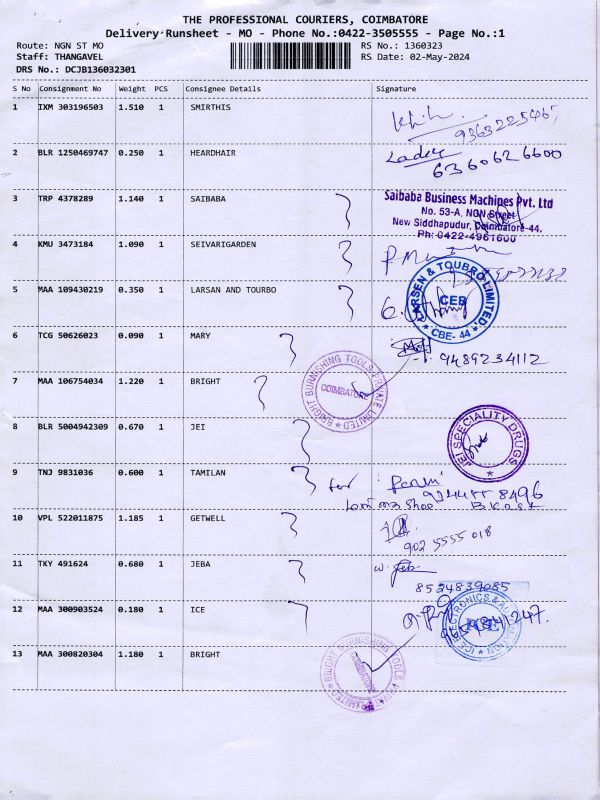 THE PROFESSIONAL COURIERS, COIMBATORE
Delivery Runsheet - MO - Phone No.:0422-3505555 - Page No.:1
Route: NGN ST MO RS No.: 1360323
Staff: THANGAVEL RS Date: 02-May-2024
DRS No.: DCJB136032301
S No Consignment No Weight PCS Consignee Details Signature
1 IXM 303196503 1.510 1 SMIRTHIS
2 BLR 1250469747 0.250 1 HEARDHAIR
6360626600
3 TRP 4378289 1.140 1 SAIBABA
Saibaba Business Machines Pvt. Ltd
No. 53-A, NGN Street
New Siddhapudur, Coimbatore-44.
Ph: 0422-4961600
4 KMU 3473184 1.090 1 SEIVARIGARDEN
5 MAA 109430219 0.350 1 LARSAN AND TOURBO
LARSEN & TOUBRO LIMITED
CEB
* CBE- 44 *
6 TCG 50626023 0.090 1 MARY
9489234112
7 MAA 106754034 1.220 1 BRIGHT
BRIGHT BURNISHING TOOLS PRIVATE LIMITED *
COIMBATORE
8 BLR 5004942309 0.670 1 JEI
JEI SPECIALITY DRUGS *
9 TNJ 9831036 0.600 1 TAMILAN
10 VPL 522011875 1.185 1 GETWELL
902 5555 018
11 TKY 491624 0.680 1 JEBA
8524839085
12 MAA 300903524 0.180 1 ICE
13 MAA 300820304 1.180 1 BRIGHT
BRIGHT BURNISHING TOOLS PRIVATE LIMITED *
COIMBATORE